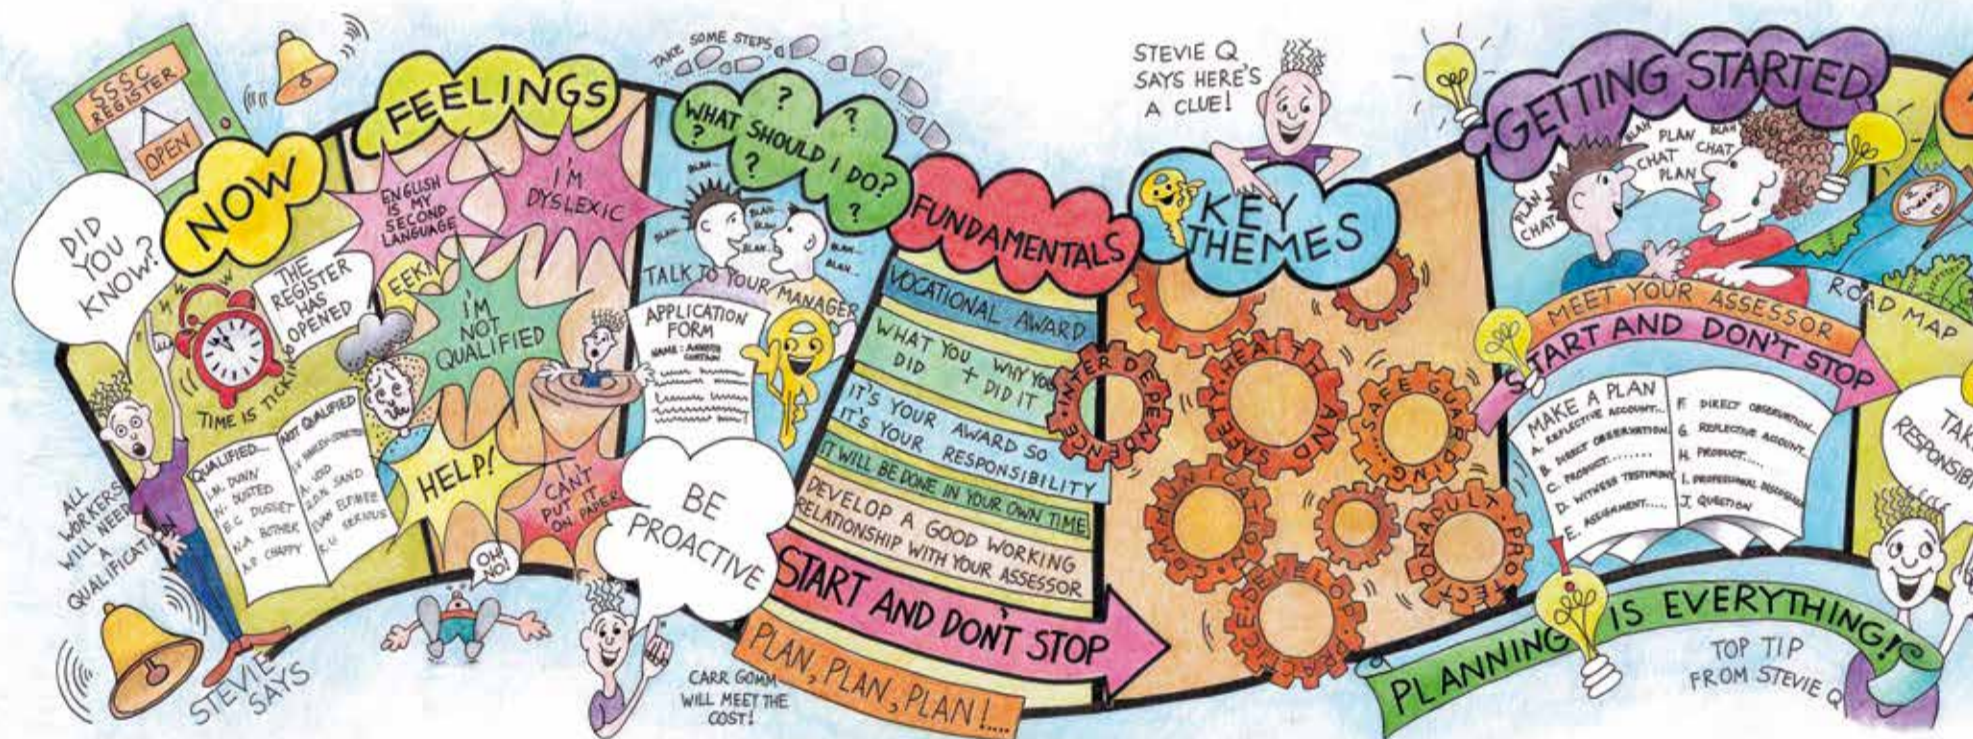 SSSC
REGISTER
OPEN
DID
YOU
KNOW?
NOW
THE
REGISTER
HAS
OPENED
TIME IS TICKING
QUALIFIED...
I.M. DUNN
N. DUSTED
E.C. DUSSET
N.A. BOTHER
A.P. CHAPPY
NOT QUALIFIED
A.
EVAN ELFIMEE
R.U. SERIOUS
ALL
WORKERS
WILL NEED
A
QUALIFICATION
STEVIE
SAYS
FEELINGS
ENGLISH
IS MY
SECOND
LANGUAGE
I'M
DYSLEXIC
EEK!
I'M
NOT
QUALIFIED
HELP!
I
CAN'T
PUT IT
ON PAPER
OH
NO!
TAKE SOME STEPS
WHAT SHOULD I DO?
? ? ? ? ?
BLAH...
BLAH...
BLAH...
BLAH...
BLAH...
BLAH...
BLAH...
BLAH...
TALK TO YOUR MANAGER
APPLICATION
FORM
NAME: ANNETTE
CURTAIN
BE
PROACTIVE
CARR GOMM
WILL MEET THE
COST!
FUNDAMENTALS
VOCATIONAL AWARD
WHAT YOU DID + WHY YOU DID IT
IT'S YOUR AWARD SO
IT'S YOUR RESPONSIBILITY
IT WILL BE DONE IN YOUR OWN TIME
DEVELOP A GOOD WORKING
RELATIONSHIP WITH YOUR ASSESSOR
START AND DON'T STOP
PLAN, PLAN, PLAN!....
STEVIE Q
SAYS HERE'S
A CLUE!
KEY
THEMES
INTER DEPENDENCE
HEALTH AND SAFETY
SAFE GUARDING...
COMMUNICATION
ADULT PROTECTION
DEVELOP PRACTICE
GETTING STARTED
PLAN
CHAT
BLAH
PLAN
BLAH
CHAT
CHAT
PLAN
MEET YOUR ASSESSOR
START AND DON'T STOP
MAKE A PLAN
A. REFLECTIVE ACCOUNT...
B. DIRECT OBSERVATION
C. PRODUCT.......
D. WITNESS TESTIMONY
E. ASSIGNMENT.....
F. DIRECT OBSERVATION...
G. REFLECTIVE ACCOUNT...
H. PRODUCT.....
I. PROFESSIONAL DISCUSSION
J. QUESTION
PLANNING IS EVERYTHING!
TOP TIP
FROM STEVIE Q
ROAD MAP